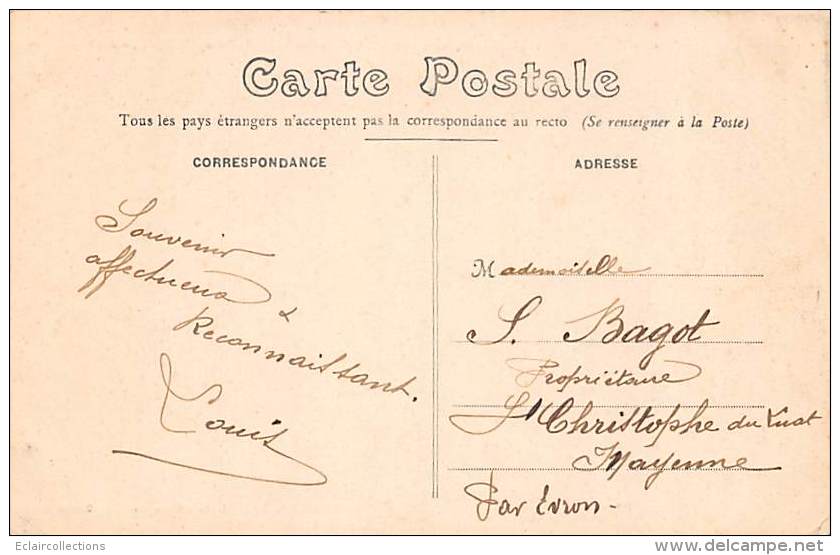 Carte Postale
Tous les pays étrangers n'acceptent pas la correspondance au recto (Se renseigner à la Poste)
CORRESPONDANCE
Souvenir
affectueux
&
Reconnaissant.
Louis
ADRESSE
Mademoiselle
S. Bagot
Propriétaire
St Christophe du Luat
Mayenne
Par Evron-
Eclaircollections
www.delcampe.net